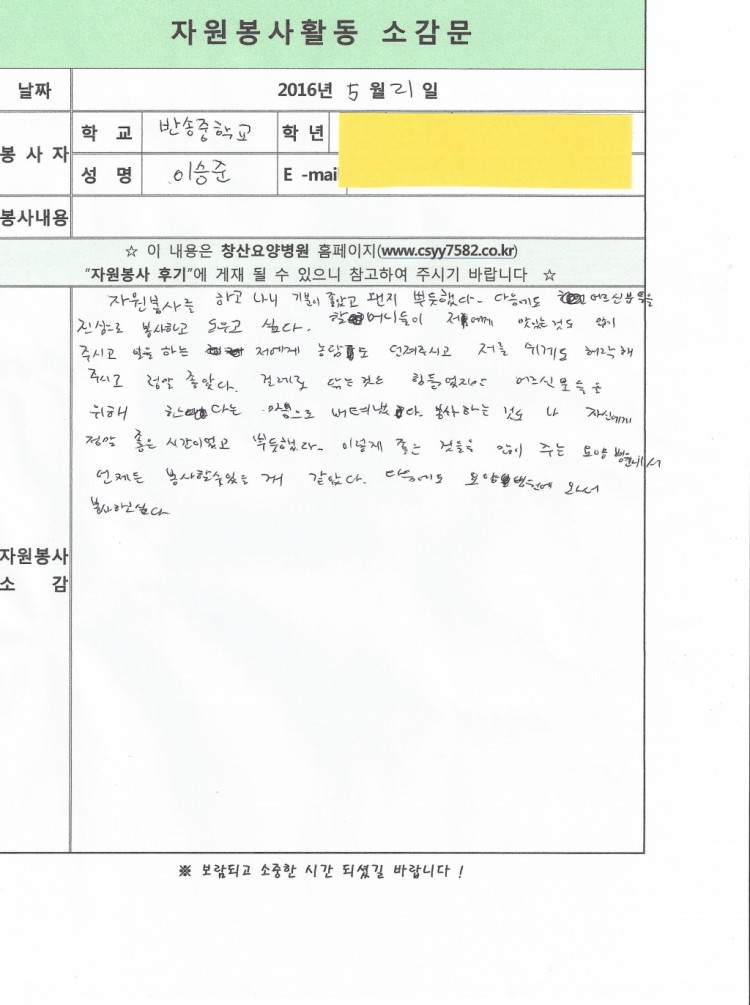 자원봉사활동 소감문
날짜 2016년 5월 21일
봉사자 학 교 반송중학교 학 년
성 명 이승준 E -mail
봉사내용
☆ 이 내용은 창산요양병원 홈페이지(www.csyy7582.co.kr)
"자원봉사 후기"에 게재 될 수 있으니 참고하여 주시기 바랍니다 ☆
자원봉사를 하고 나니 기분이 좋았고 왠지 뿌듯했다. 다음에도 어르신분들을
진심으로 봉사하고 도우고 싶다. 할머니들이 저에게 맛있는것도 많이
주시고 일을 하는 저에게 농담도 던져주시고 저를 쉬게도 허락해
주시고 정말 좋았다. 걸레로 닦는것은 힘들었지만 어르신분들을
위해 한다는 마음으로 버텨냈다. 봉사하는 것도 나 자신에게
정말 좋은 시간이었고 뿌듯했다. 이렇게 좋은 것들을 많이 주는 요양병원에서
언제든 봉사할수있을 거 같았다. 다음에도 요양병원에 와서
봉사하고싶다
자원봉사
소 감
※ 보람되고 소중한 시간 되셨길 바랍니다 !